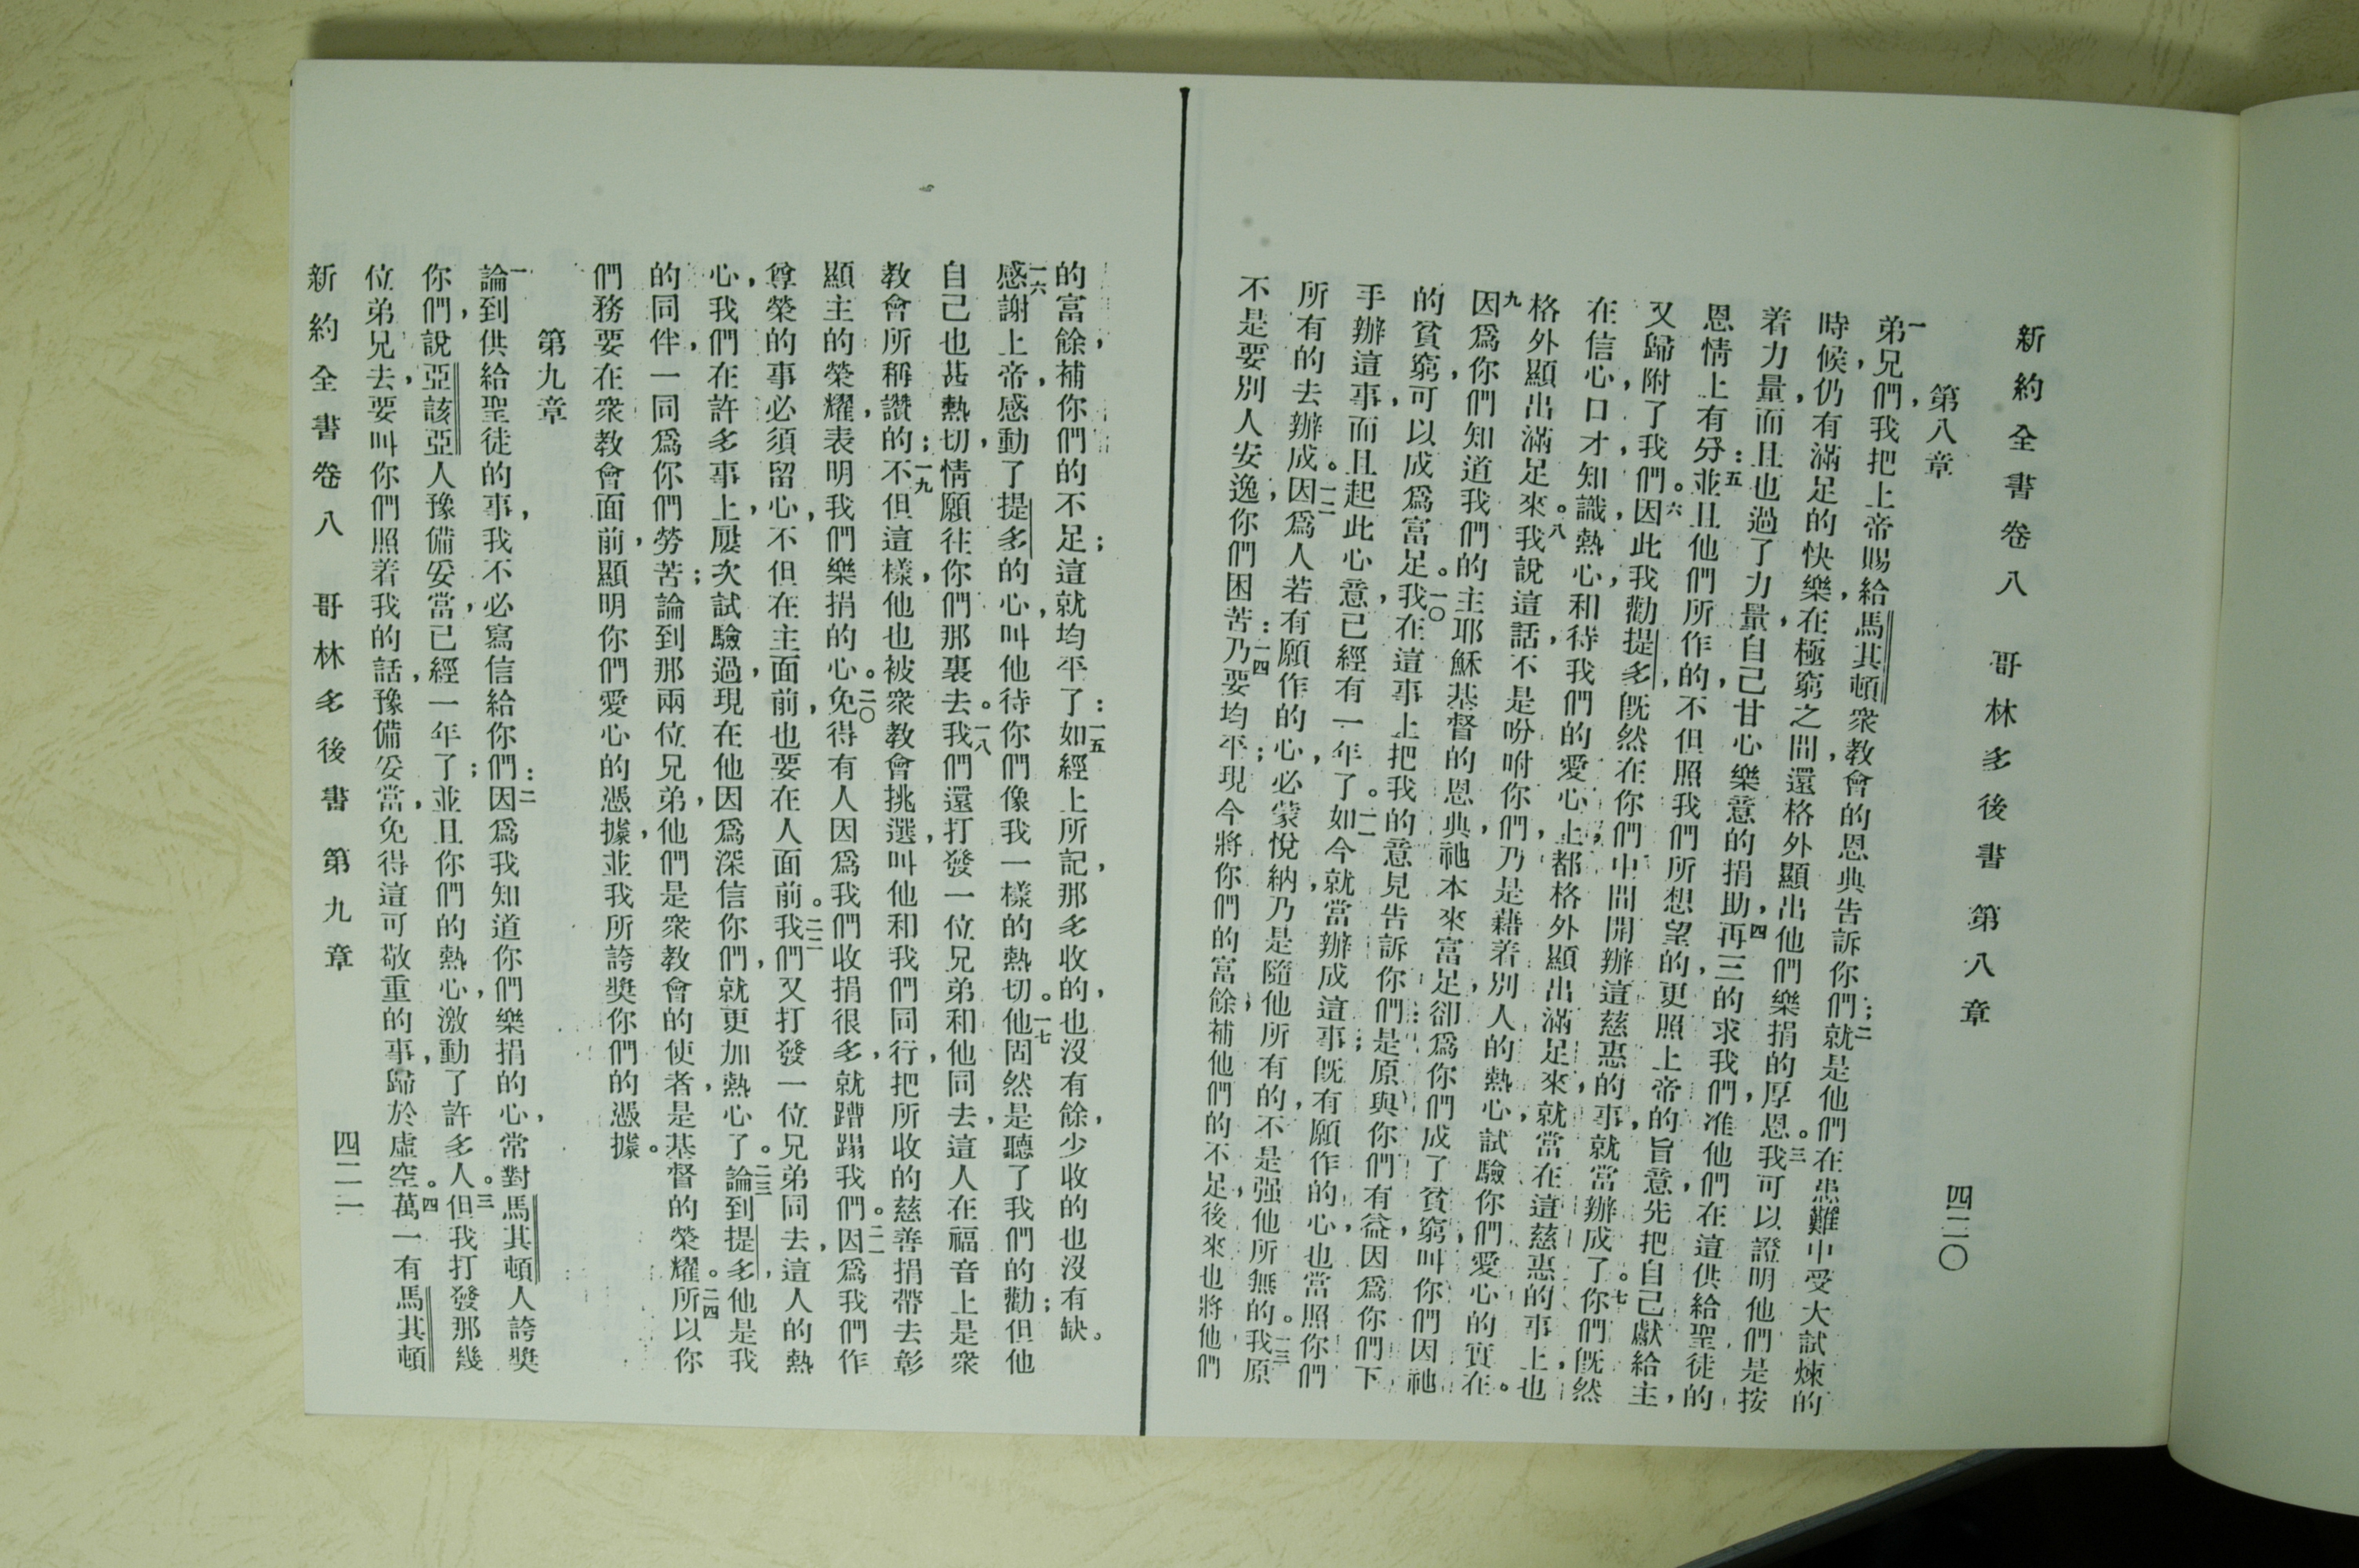 新約全書卷八 哥林多後書 第八章 四二〇
第八章
一弟兄們，我把上帝賜給馬其頓衆教會的恩典告訴你們：二就是他們在患難中受大試煉的
時候，仍有滿足的快樂，在極窮之間，還格外顯出他們樂捐的厚恩。三我可以證明他們是按
着力量，而且也過了力量，自己甘心樂意的捐助，四再三的求我們，准他們在這供給聖徒的
恩情上有分：五並且他們所作的，不但照我們所想望的，更照上帝的旨意，先把自己獻給主，
又歸附了我們。六因此我勸提多，旣然在你們中間開辦這慈惠的事，就當辦成了。七你們旣然
在信心，口才，知識，熱心，和待我們的愛心上，都格外顯出滿足來，就當在這慈惠的事上，也
格外顯出滿足來。八我說這話，不是吩咐你們，乃是藉着別人的熱心，試驗你們愛心的實在。
九因爲你們知道我們的主耶穌基督的恩典，祂本來富足，卻爲你們成了貧窮，叫你們因祂
的貧窮，可以成爲富足。一〇我在這事上把我的意見告訴你們：是原與你們有益，因爲你們下
手辦這事，而且起此心意，已經有一年了。一一如今就當辦成這事；旣有願作的心，也當照你們
所有的去辦成。一二因爲人若有願作的心，必蒙悅納，乃是隨他所有的，不是强他所無的。一三我原
不是要別人安逸，你們困苦：一四乃要均平；現今將你們的富餘，補他們的不足，後來也將他們
的富餘，補你們的不足；這就均平了：一五如經上所記，那多收的，也沒有餘，少收的也沒有缺。
一六感謝上帝，感動了提多的心，叫他待你們像我一樣的熱切。一七他固然是聽了我們的勸；但他
自己也甚熱切，情願往你們那裏去。一八我們還打發一位兄弟和他同去，這人在福音上是衆
教會所稱讚的；一九不但這樣，他也被衆教會挑選，叫他和我們同行，把所收的慈善捐帶去，彰
顯主的榮耀，表明我們樂捐的心。二〇免得有人因爲我們收捐很多，就蹧蹋我們。二一因爲我們作
尊榮的事，必須留心，不但在主面前，也要在人面前。二二我們又打發一位兄弟同去，這人的熱
心，我們在許多事上，屢次試驗過，現在他因爲深信你們，就更加熱心了。二三論到提多，他是我
的同伴，一同爲你們勞苦；論到那兩位兄弟，他們是衆教會的使者，是基督的榮耀。二四所以你
們務要在衆教會面前，顯明你們愛心的憑據，並我所誇獎你們的憑據。
第九章
一論到供給聖徒的事，我不必寫信給你們：二因爲我知道你們樂捐的心，常對馬其頓人誇獎
你們，說亞該亞人豫備妥當，已經一年了；並且你們的熱心，激動了許多人。三但我打發那幾
位弟兄去，要叫你們照着我的話，豫備妥當，免得這可敬重的事，歸於虛空。四萬一有馬其頓
新約全書卷八 哥林多後書 第九章 四二一